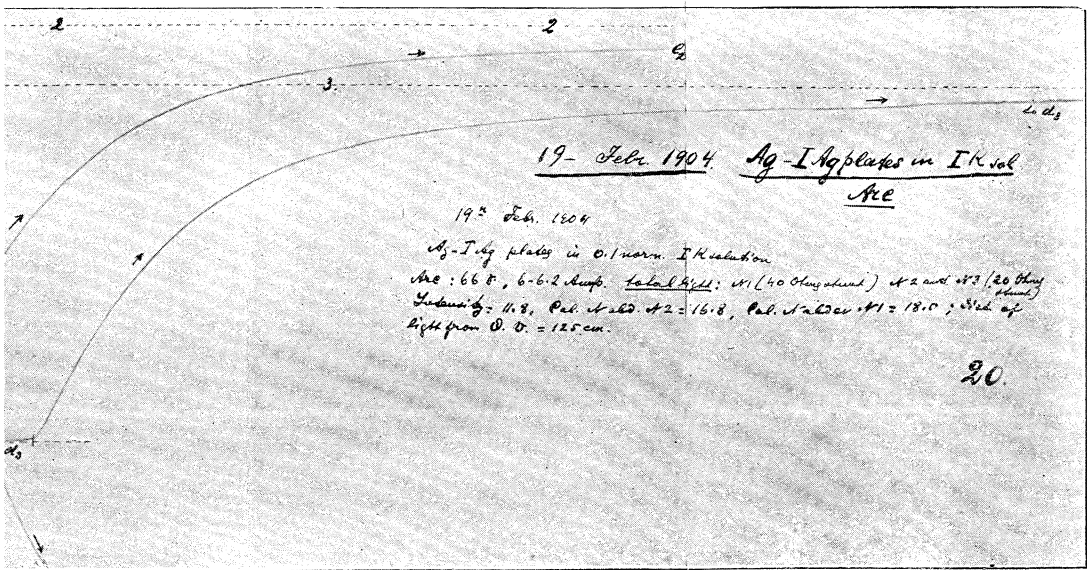 2 2
3.
19 - Febr. 1904. Ag-I Ag plates in I K sol
Arc
19th Febr. 1904
Ag-I Ag plates in 0.1 norm. I K solution
Arc: 66 , 6-6.2 Amp. total light: N1 (40 Ohm shunt) N2 and N3 (20 Ohm shunt)
Intensity = 11.8, Cal. N2 = 16.8, Cal. N1 = 18.5 ; of
light from = 125 cm.
20.
d3